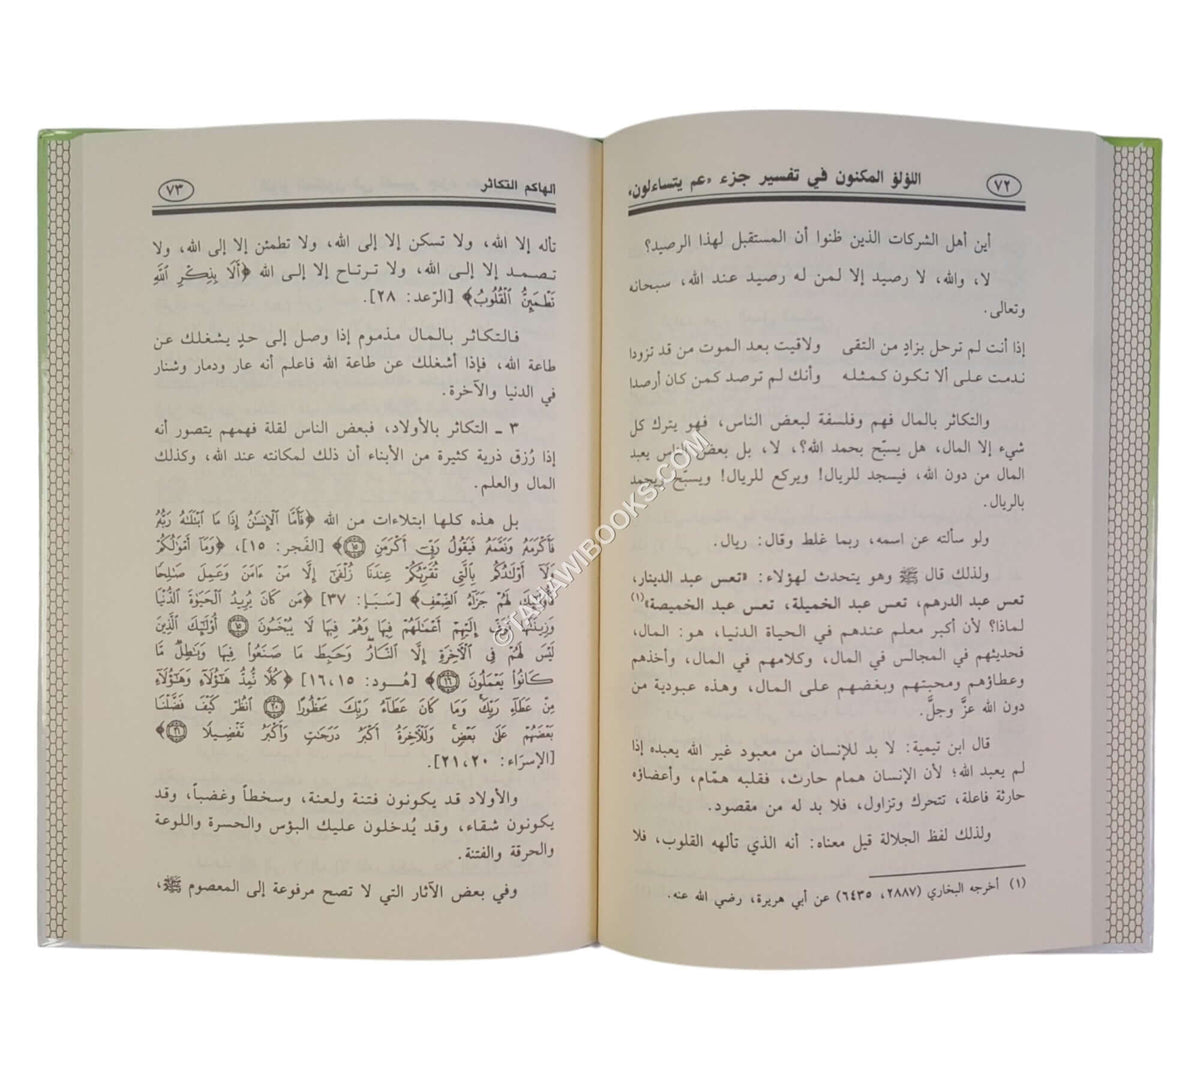 ٧٢
اللؤلؤ المكنون في تفسير جزء «عم يتساءلون»
أين أهل الشركات الذين ظنوا أن المستقبل لهذا الرصيد؟
لا، والله، لا رصيد إلا لمن له رصيد عند الله، سبحانه
وتعالى.
إذا أنت لم ترحل بزادٍ من التقى ولاقيت بعد الموت من قد تزودا
ندمت على ألا تكون كمثله وأنك لم ترصد كمن كان أرصدا
والتكاثر بالمال فهم وفلسفة لبعض الناس، فهو يترك كل
شيء إلا المال، هل يسبّح بحمد الله؟، لا، بل بعض الناس يعبد
المال من دون الله، فيسجد للريال! ويركع للريال! ويسبّح ويحمد
بالريال.
ولو سألته عن اسمه، ربما غلط وقال: ريال.
ولذلك قال ﷺ وهو يتحدث لهؤلاء: «تعس عبد الدينار،
تعس عبد الدرهم، تعس عبد الخميلة، تعس عبد الخميصة»(١)
لماذا؟ لأن أكبر معلم عندهم في الحياة الدنيا، هو: المال،
فحديثهم في المجالس في المال، وكلامهم في المال، وأخذهم
وعطاؤهم ومحبتهم وبغضهم على المال، وهذه عبودية من
دون الله عزَّ وجلَّ.
قال ابن تيمية: لا بد للإنسان من معبود غير الله يعبده إذا
لم يعبد الله؛ لأن الإنسان همام حارث، فقلبه همّام، وأعضاؤه
حارثة فاعلة، تتحرك وتزاول، فلا بد له من مقصود.
ولذلك لفظ الجلالة قيل معناه: أنه الذي تألهه القلوب، فلا
(١) أخرجه البخاري (٢٨٨٧، ٦٤٣٥) عن أبي هريرة، رضي الله عنه.
ألهاكم التكاثر
٧٣
تأله إلا الله، ولا تسكن إلا إلى الله، ولا تطمئن إلا إلى الله، ولا
تصمد إلا إلى الله، ولا ترتاح إلا إلى الله ﴿أَلَا بِذِكْرِ اللَّهِ
تَطْمَئِنُّ الْقُلُوبُ﴾ [الرّعد: ٢٨].
فالتكاثر بالمال مذموم إذا وصل إلى حدٍ يشغلك عن
طاعة الله، فإذا أشغلك عن طاعة الله فاعلم أنه عار ودمار وشنار
في الدنيا والآخرة.
٣ ـ التكاثر بالأولاد، فبعض الناس لقلة فهمهم يتصور أنه
إذا رُزق ذرية كثيرة من الأبناء أن ذلك لمكانته عند الله، وكذلك
المال والعلم.
بل هذه كلها ابتلاءات من الله ﴿فَأَمَّا الْإِنسَانُ إِذَا مَا ابْتَلَاهُ رَبُّهُ
فَأَكْرَمَهُ وَنَعَّمَهُ فَيَقُولُ رَبِّي أَكْرَمَنِ ١٥﴾ [الفَجر: ١٥]، ﴿وَمَا أَمْوَالُكُمْ
وَلَا أَوْلَادُكُم بِالَّتِي تُقَرِّبُكُمْ عِندَنَا زُلْفَى إِلَّا مَنْ ءَامَنَ وَعَمِلَ صَالِحًا
فَأُولَئِكَ لَهُمْ جَزَاءُ الضِّعْفِ﴾ [سَبَأ: ٣٧] ﴿مَن كَانَ يُرِيدُ الْحَيَاةَ الدُّنْيَا
وَزِينَتَهَا نُوَفِّ إِلَيْهِمْ أَعْمَالَهُمْ فِيهَا وَهُمْ فِيهَا لَا يُبْخَسُونَ ١٥ أُولَئِكَ الَّذِينَ
لَيْسَ لَهُمْ فِي الْآخِرَةِ إِلَّا النَّارُ وَحَبِطَ مَا صَنَعُوا فِيهَا وَبَاطِلٌ مَّا
كَانُوا يَعْمَلُونَ ١٦﴾ [هُود: ١٥، ١٦] ﴿كُلًّا نُّمِدُّ هَؤُلَاءِ وَهَؤُلَاءِ
مِنْ عَطَاءِ رَبِّكَ وَمَا كَانَ عَطَاءُ رَبِّكَ مَحْظُورًا ٢٠ انظُرْ كَيْفَ فَضَّلْنَا
بَعْضَهُمْ عَلَى بَعْضٍ وَلَلْآخِرَةُ أَكْبَرُ دَرَجَاتٍ وَأَكْبَرُ تَفْضِيلًا ٢١﴾
[الإسرَاء: ٢٠، ٢١].
والأولاد قد يكونون فتنة ولعنة، وسخطاً وغضباً، وقد
يكونون شقاء، وقد يُدخلون عليك البؤس والحسرة واللوعة
والحرقة والفتنة.
وفي بعض الآثار التي لا تصح مرفوعة إلى المعصوم ﷺ،
©TAHAWIBOOKS.COM